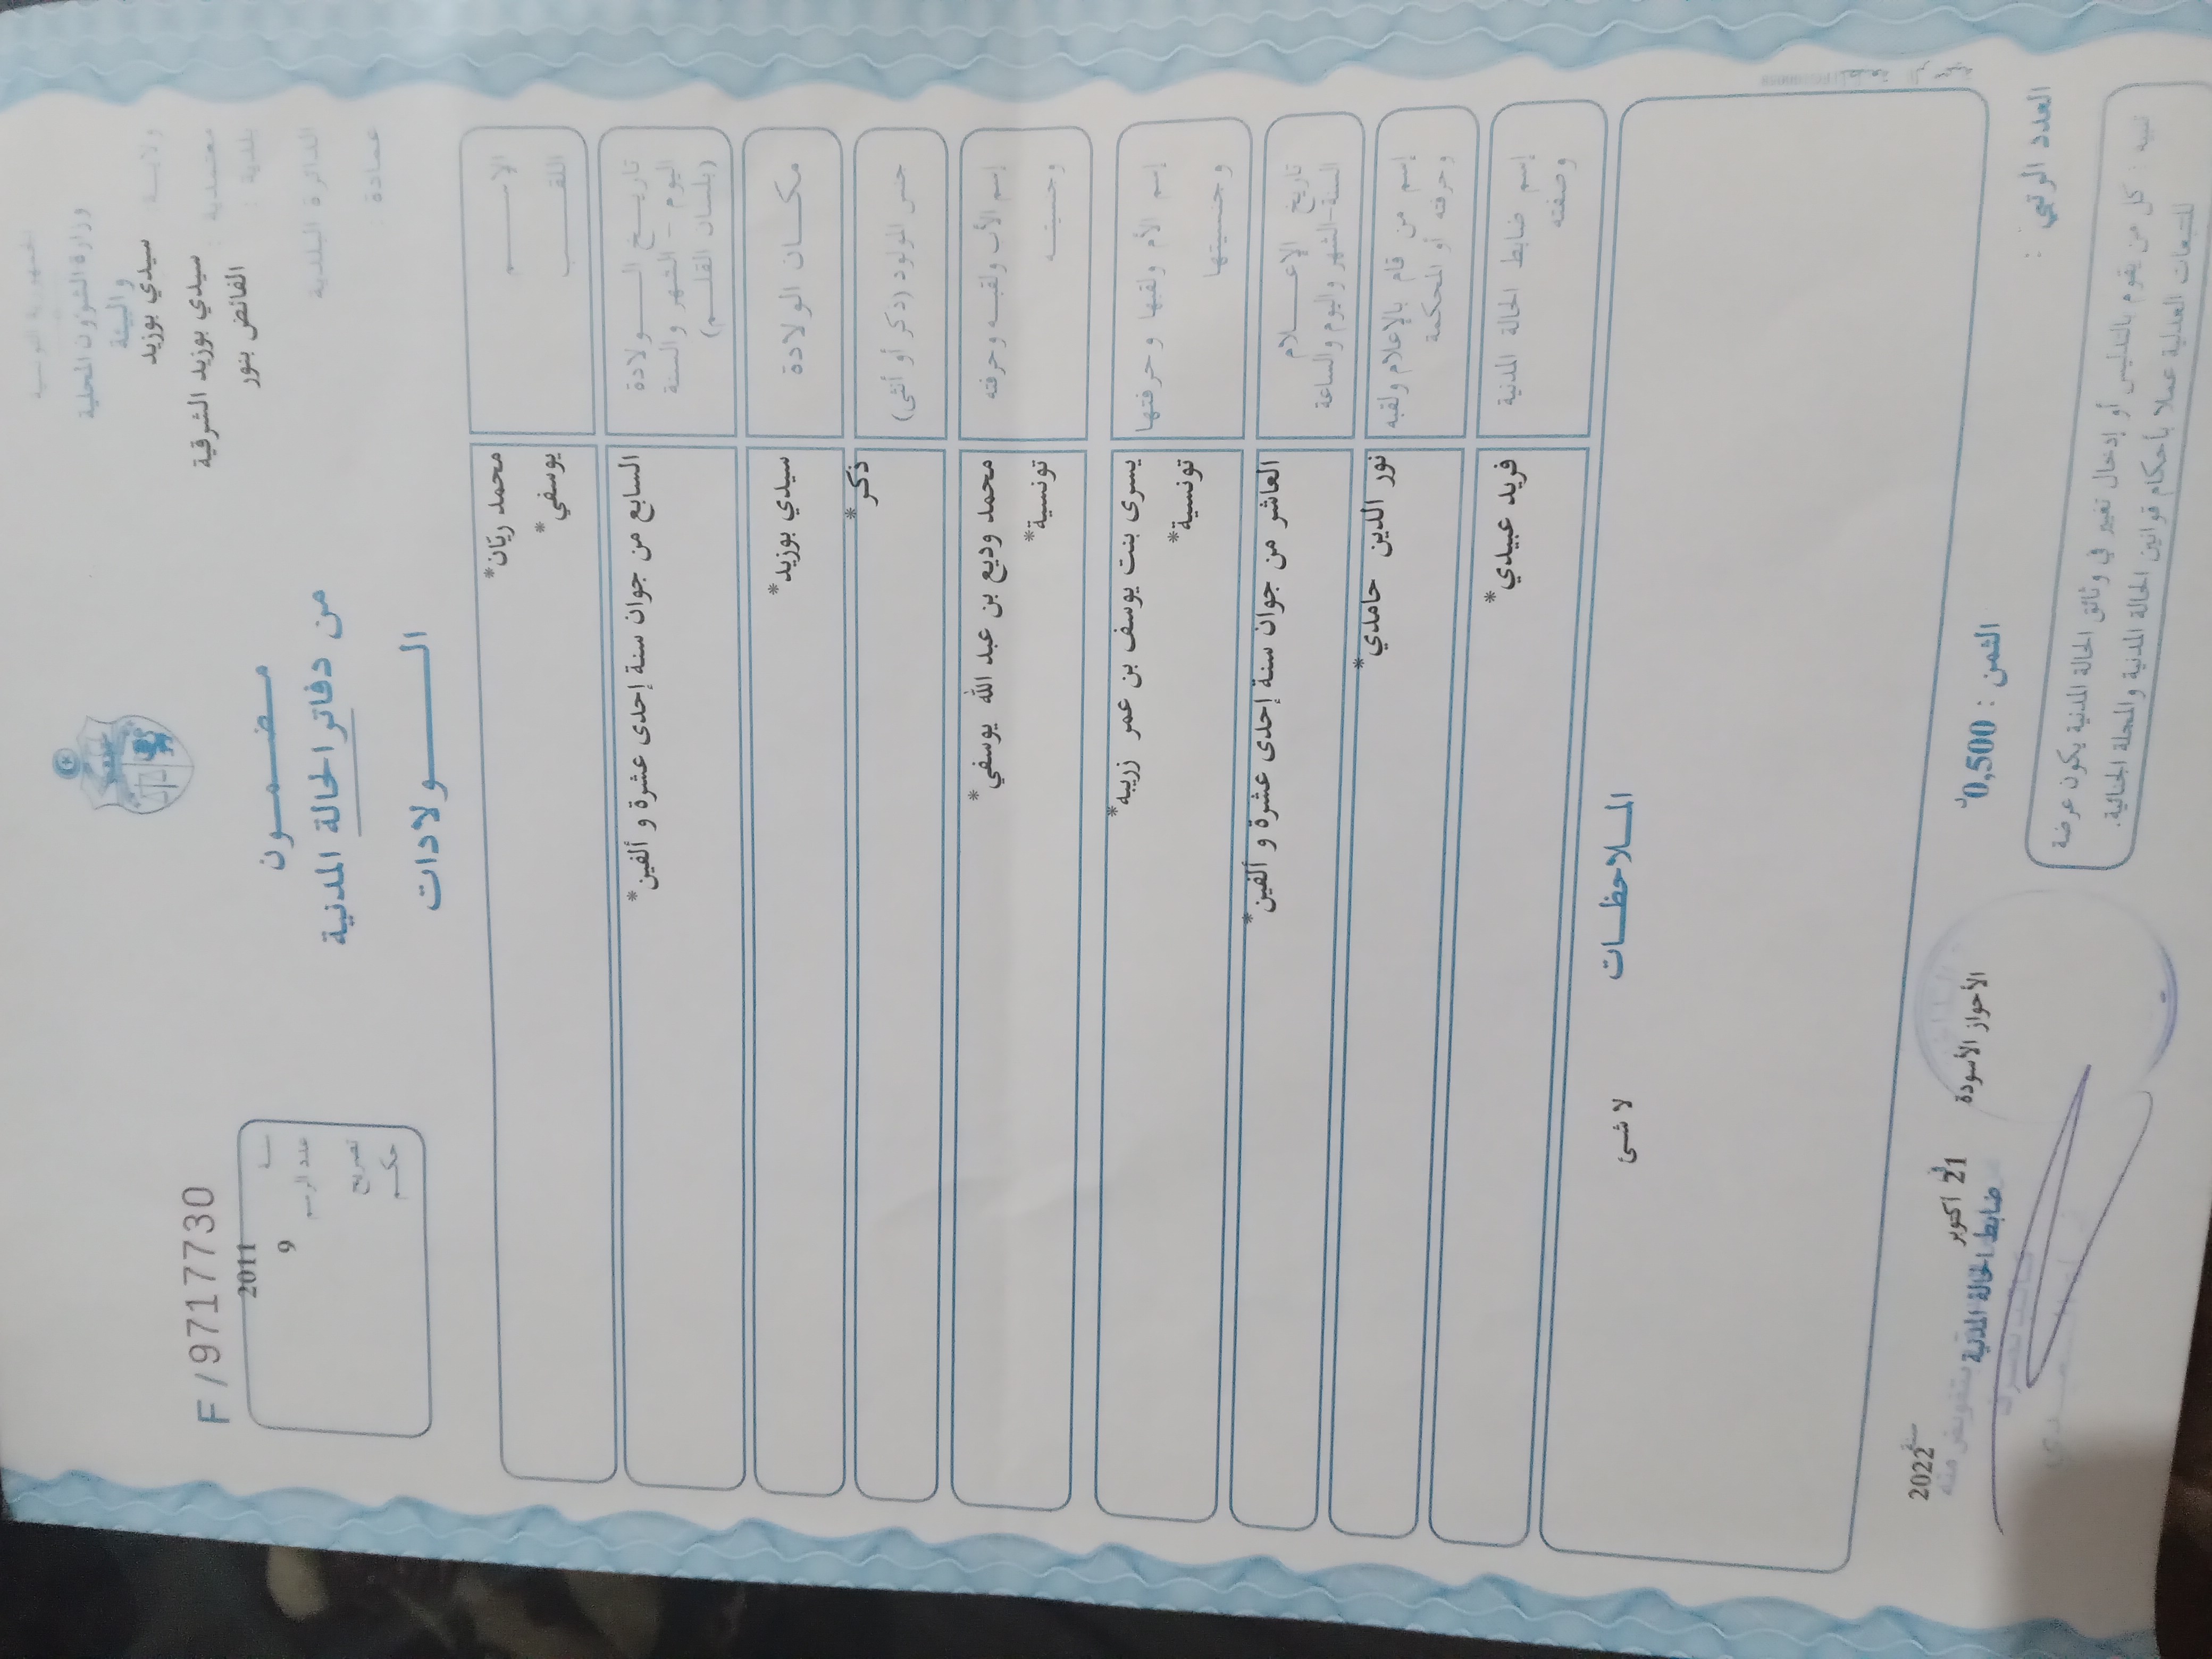 الجمهورية التونسية
وزارة الشؤون المحلية
والبيئة
ولايـــة : سيدي بوزيد
معتمدية : سيدي بوزيد الشرقية
بلدية : الفائض بنور
الدائرة البلدية
عمادة :
مـضـمـــون
من دفاتر الحالة المدنية
الـــــــولادات
F/9717730
سنـــة 2011
عدد الرسم 9
تصريح
حكـم
الإســــــم
محمد ريّان*
اللقــــــب
يوسفي*
تاريــخ الـــــولادة
اليوم - الشهر والسنة
(بلسان القلـــم)
السابع من جوان سنة إحدى عشرة و ألفين*
مكــان الولادة
سيدي بوزيد*
جنس المولود (ذكر أو أنثى)
ذكر*
إسم الأب ولقبـــه وحرفته
محمد وديع بن عبد الله يوسفي*
وجنسيتـــه
تونسية*
إسم الأم ولقبها وحرفتها
يسرى بنت يوسف بن عمر زريبه*
وجنسيتها
تونسية*
تاريخ الإعـــــلام
السنة-الشهر واليوم والساعة
العاشر من جوان سنة إحدى عشرة و ألفين*
إسم من قام بالإعلام ولقبه
وحرفته أو المحكمة
نور الدين حامدي*
إسم ضابط الحالة المدنية
وصفته
فريد عبيدي*
المـــلاحظـــات
لا شئ
الأحواز الأسودة في 21 أكتوبر سنة 2022
ضابط الحالة المدنية
بتفويض منه
العدد الرتبي :
الثمن : 0,500د
تنبيه : كل من يقوم بالتدليس أو إدخال تغيير في وثائق الحالة المدنية يكون عرضة
للتبعات العدلية عملا بأحكام قوانين الحالة المدنية والمجلة الجنائية.